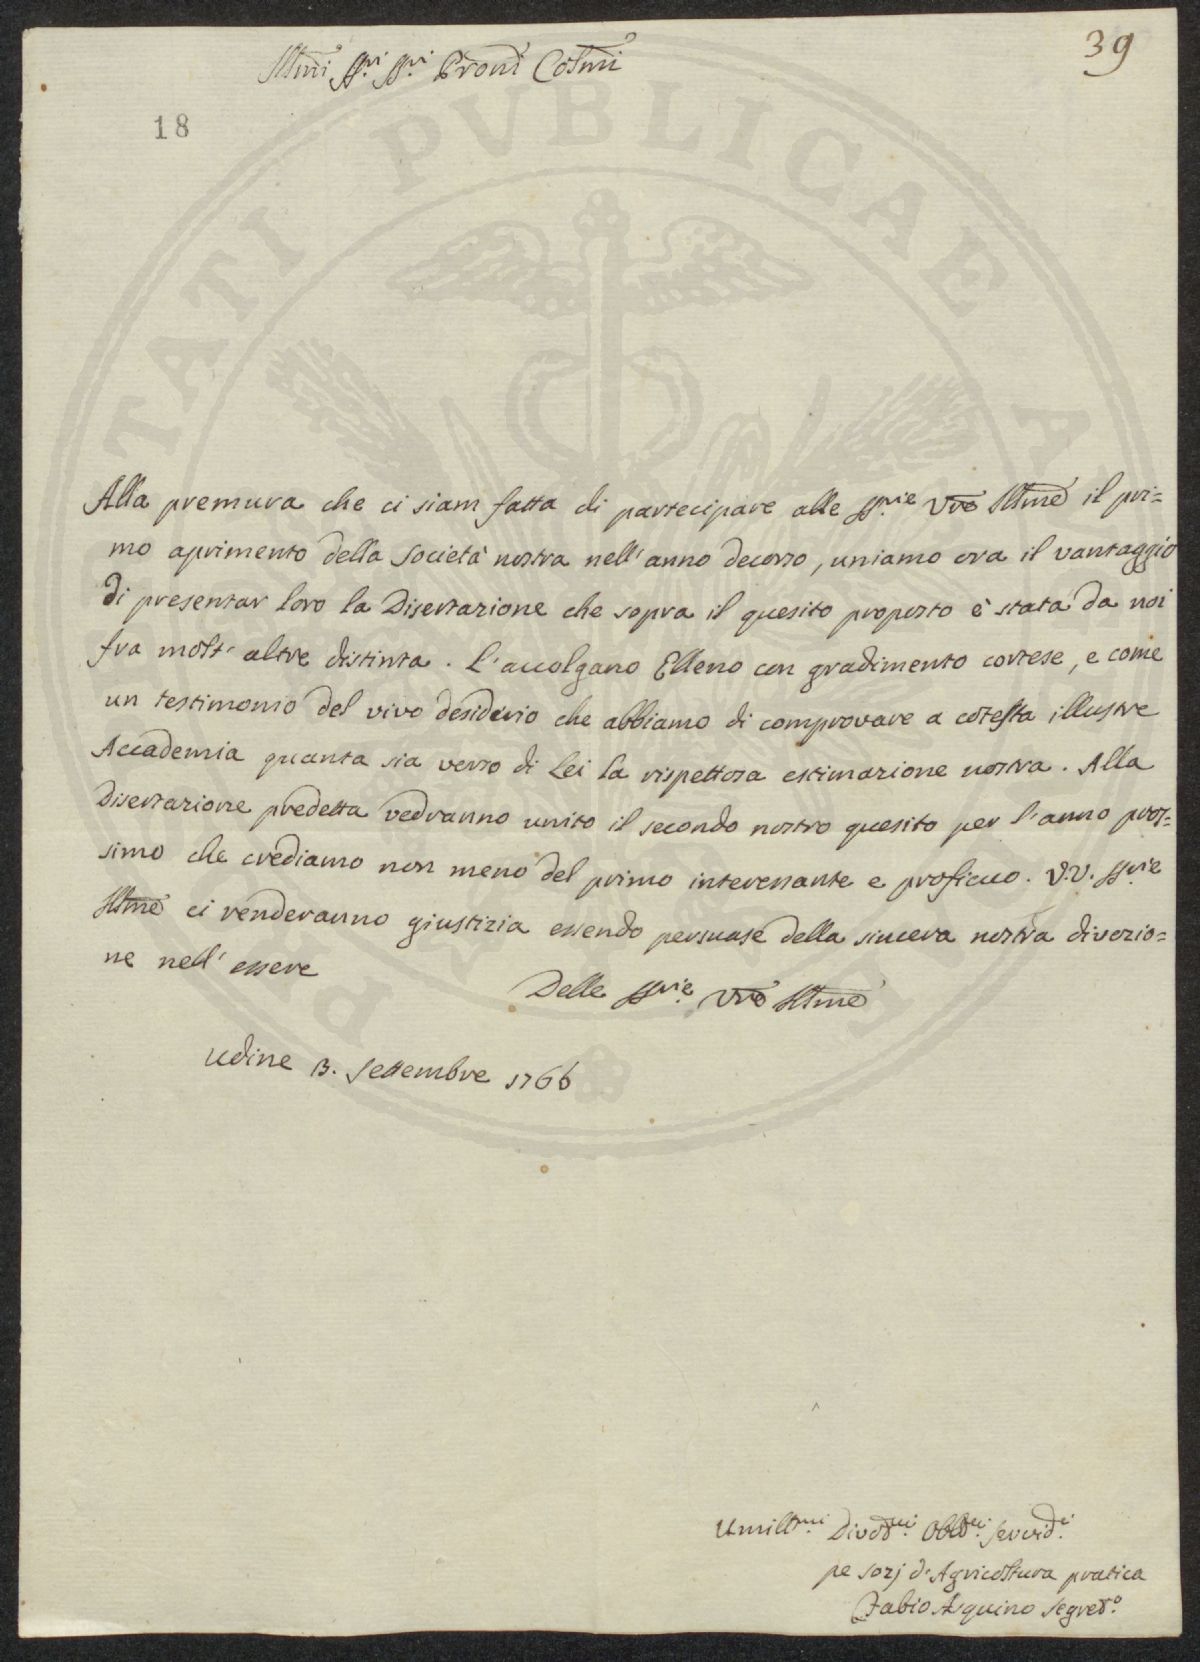 39
Illmi Ssri Ssri Proni Colmi
18
Alla premura che ci siam fatta di partecipare alle Ssrie Vre Illme il pri=
mo aprimento della Società nostra nell'anno decorso, uniamo ora il vantaggio
di presentar loro la Disertazione che sopra il quesito proposto è stata da noi
fra molt'altre distinta. L'accolgano Elleno con gradimento cortese, e come
un testimonio del vivo desiderio che abbiamo di comprovare a cotesta illustre
Accademia quanta sia verso di Lei la rispettosa estimazione nostra. Alla
Disertazione predetta vedranno unito il secondo nostro quesito per l'anno pros=
simo che crediamo non meno del primo interessante e proficuo. V.V. Ssrie
Illme ci renderanno giustizia essendo persuase della sincera nostra divozio=
ne nell'essere
Delle Ssrie Vre Illme
Udine 13. Settembre 1766
Umillmi Divotmi Obbmi Servid.i
pe Sozj d'Agricoltura pratica
Fabio Asquino Segret.o